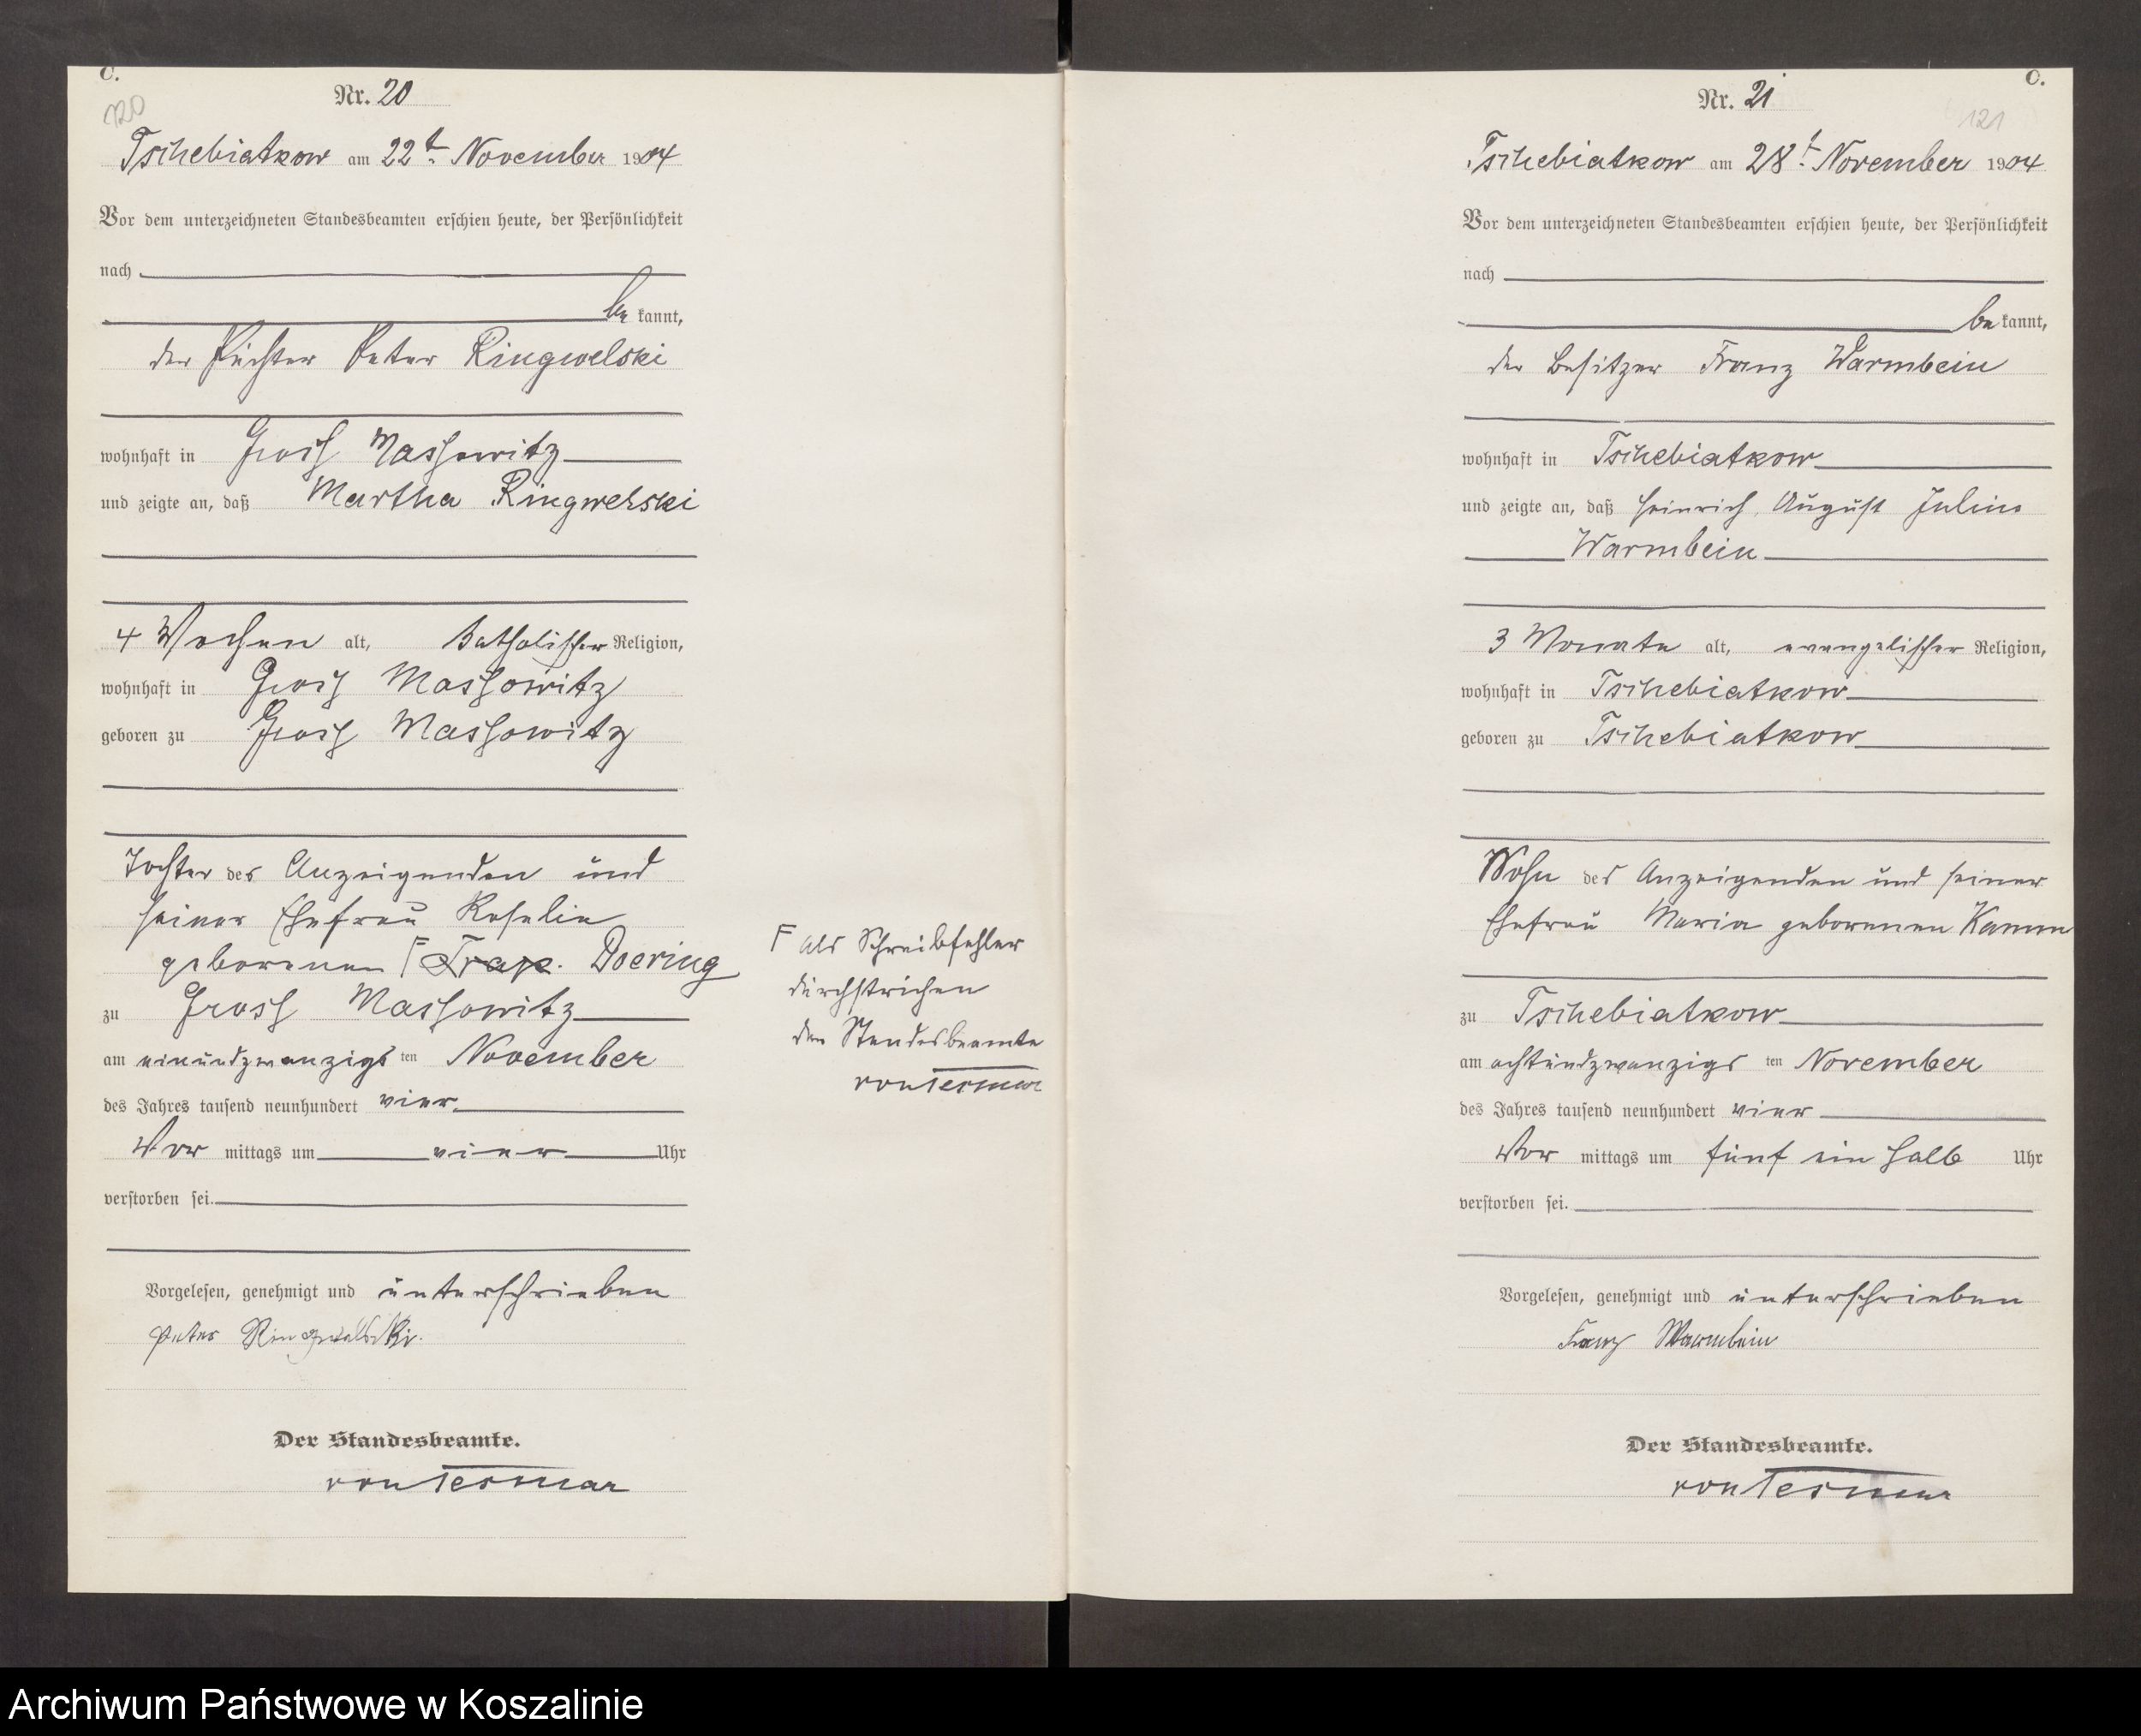 C.
120
Nr. 20
Tschebiatkow am 22t. November 1904
Vor dem unterzeichneten Standesbeamten erschien heute, der Persönlichkeit
nach
be kannt,
der Pächter Peter Ringwelski
wohnhaft in Gross Massowitz
und zeigte an, daß Martha Ringwelski
4 Wochen alt, katholischer Religion,
wohnhaft in Gross Massowitz
geboren zu Gross Massowitz
Tochter des Anzeigenden und
seiner Ehefrau Rosalie
geborenen Doering
zu Gross Massowitz
am einundzwanzigs ten November
des Jahres tausend neunhundert vier
Vor mittags um vier Uhr
verstorben sei.
Vorgelesen, genehmigt und unterschrieben
Peter Ringwelski.
Der Standesbeamte.
von Tesmar
F als Schreibfehler
durchstrichen
der Standesbeamte
von Tesmar
C.
121
Nr. 21
Tschebiatkow am 28t. November 1904
Vor dem unterzeichneten Standesbeamten erschien heute, der Persönlichkeit
nach
be kannt,
der Besitzer Franz Warmbein
wohnhaft in Tschebiatkow
und zeigte an, daß Heinrich August Julius
Warmbein
3 Monate alt, evangelischer Religion,
wohnhaft in Tschebiatkow
geboren zu Tschebiatkow
Sohn des Anzeigenden und seiner
Ehefrau Maria geborenen Kamm
zu Tschebiatkow
am achtundzwanzigs ten November
des Jahres tausend neunhundert vier
Vor mittags um fünf ein halb Uhr
verstorben sei.
Vorgelesen, genehmigt und unterschrieben
Franz Warmbein
Der Standesbeamte.
von Tesmar
Archiwum Państwowe w Koszalinie